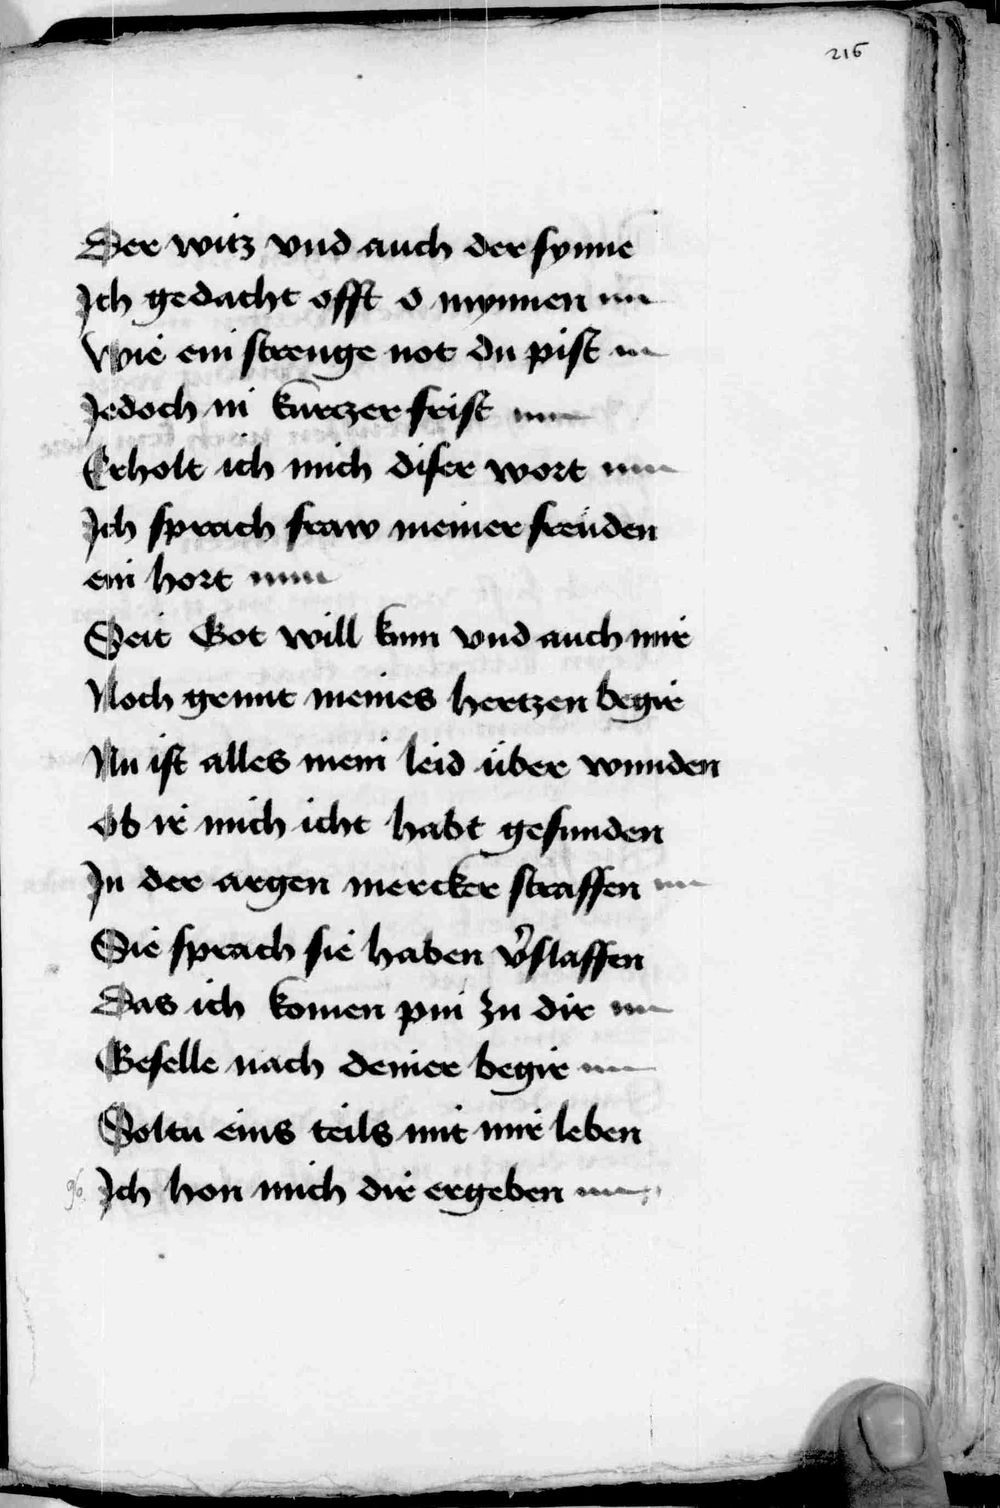 216
Der witz vnd auch der synne
Ich gedacht offt o mynnen
Wie ein strenge not du pist
Jedoch in kurtzer frist
Erholt ich mich diser wort
Ich sprach fraw meiner freüden
ein hort
Seit Got will kum vnd auch mir
Noch gennt meines hertzen begir
Nu ist alles mein leid über wunden
Ob ir mich icht habt gefunden
In der argen mercker straffen
Sie sprach sie haben v̾slaffen
Das ich komen pin zu dir
Geselle nach deiner begir
Soltu eins teils mit mir leben
96. Ich hon mich dir ergeben